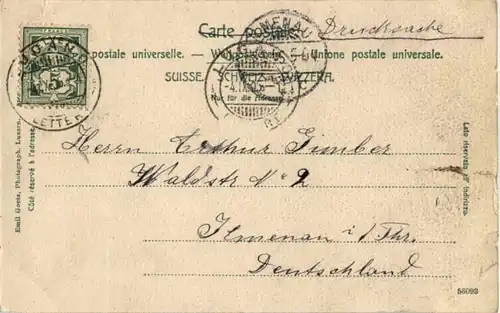 Carte postale. Drucksache
Union postale universelle. — Weltpostverein. — Unione postale universale.
SUISSE. SCHWEIZ. SVIZZERA.
Nur für die Adresse
LUGANO
LETTER
ILMENAU
Herrn Arthur Fimber
Waldstr No 2
Ilmenau i/Thr.
Deutschland
Emil Goetz, Photograph, Luzern.
Côté réservé à l'adresse.
Lato riservato all' indirizzo.
56093